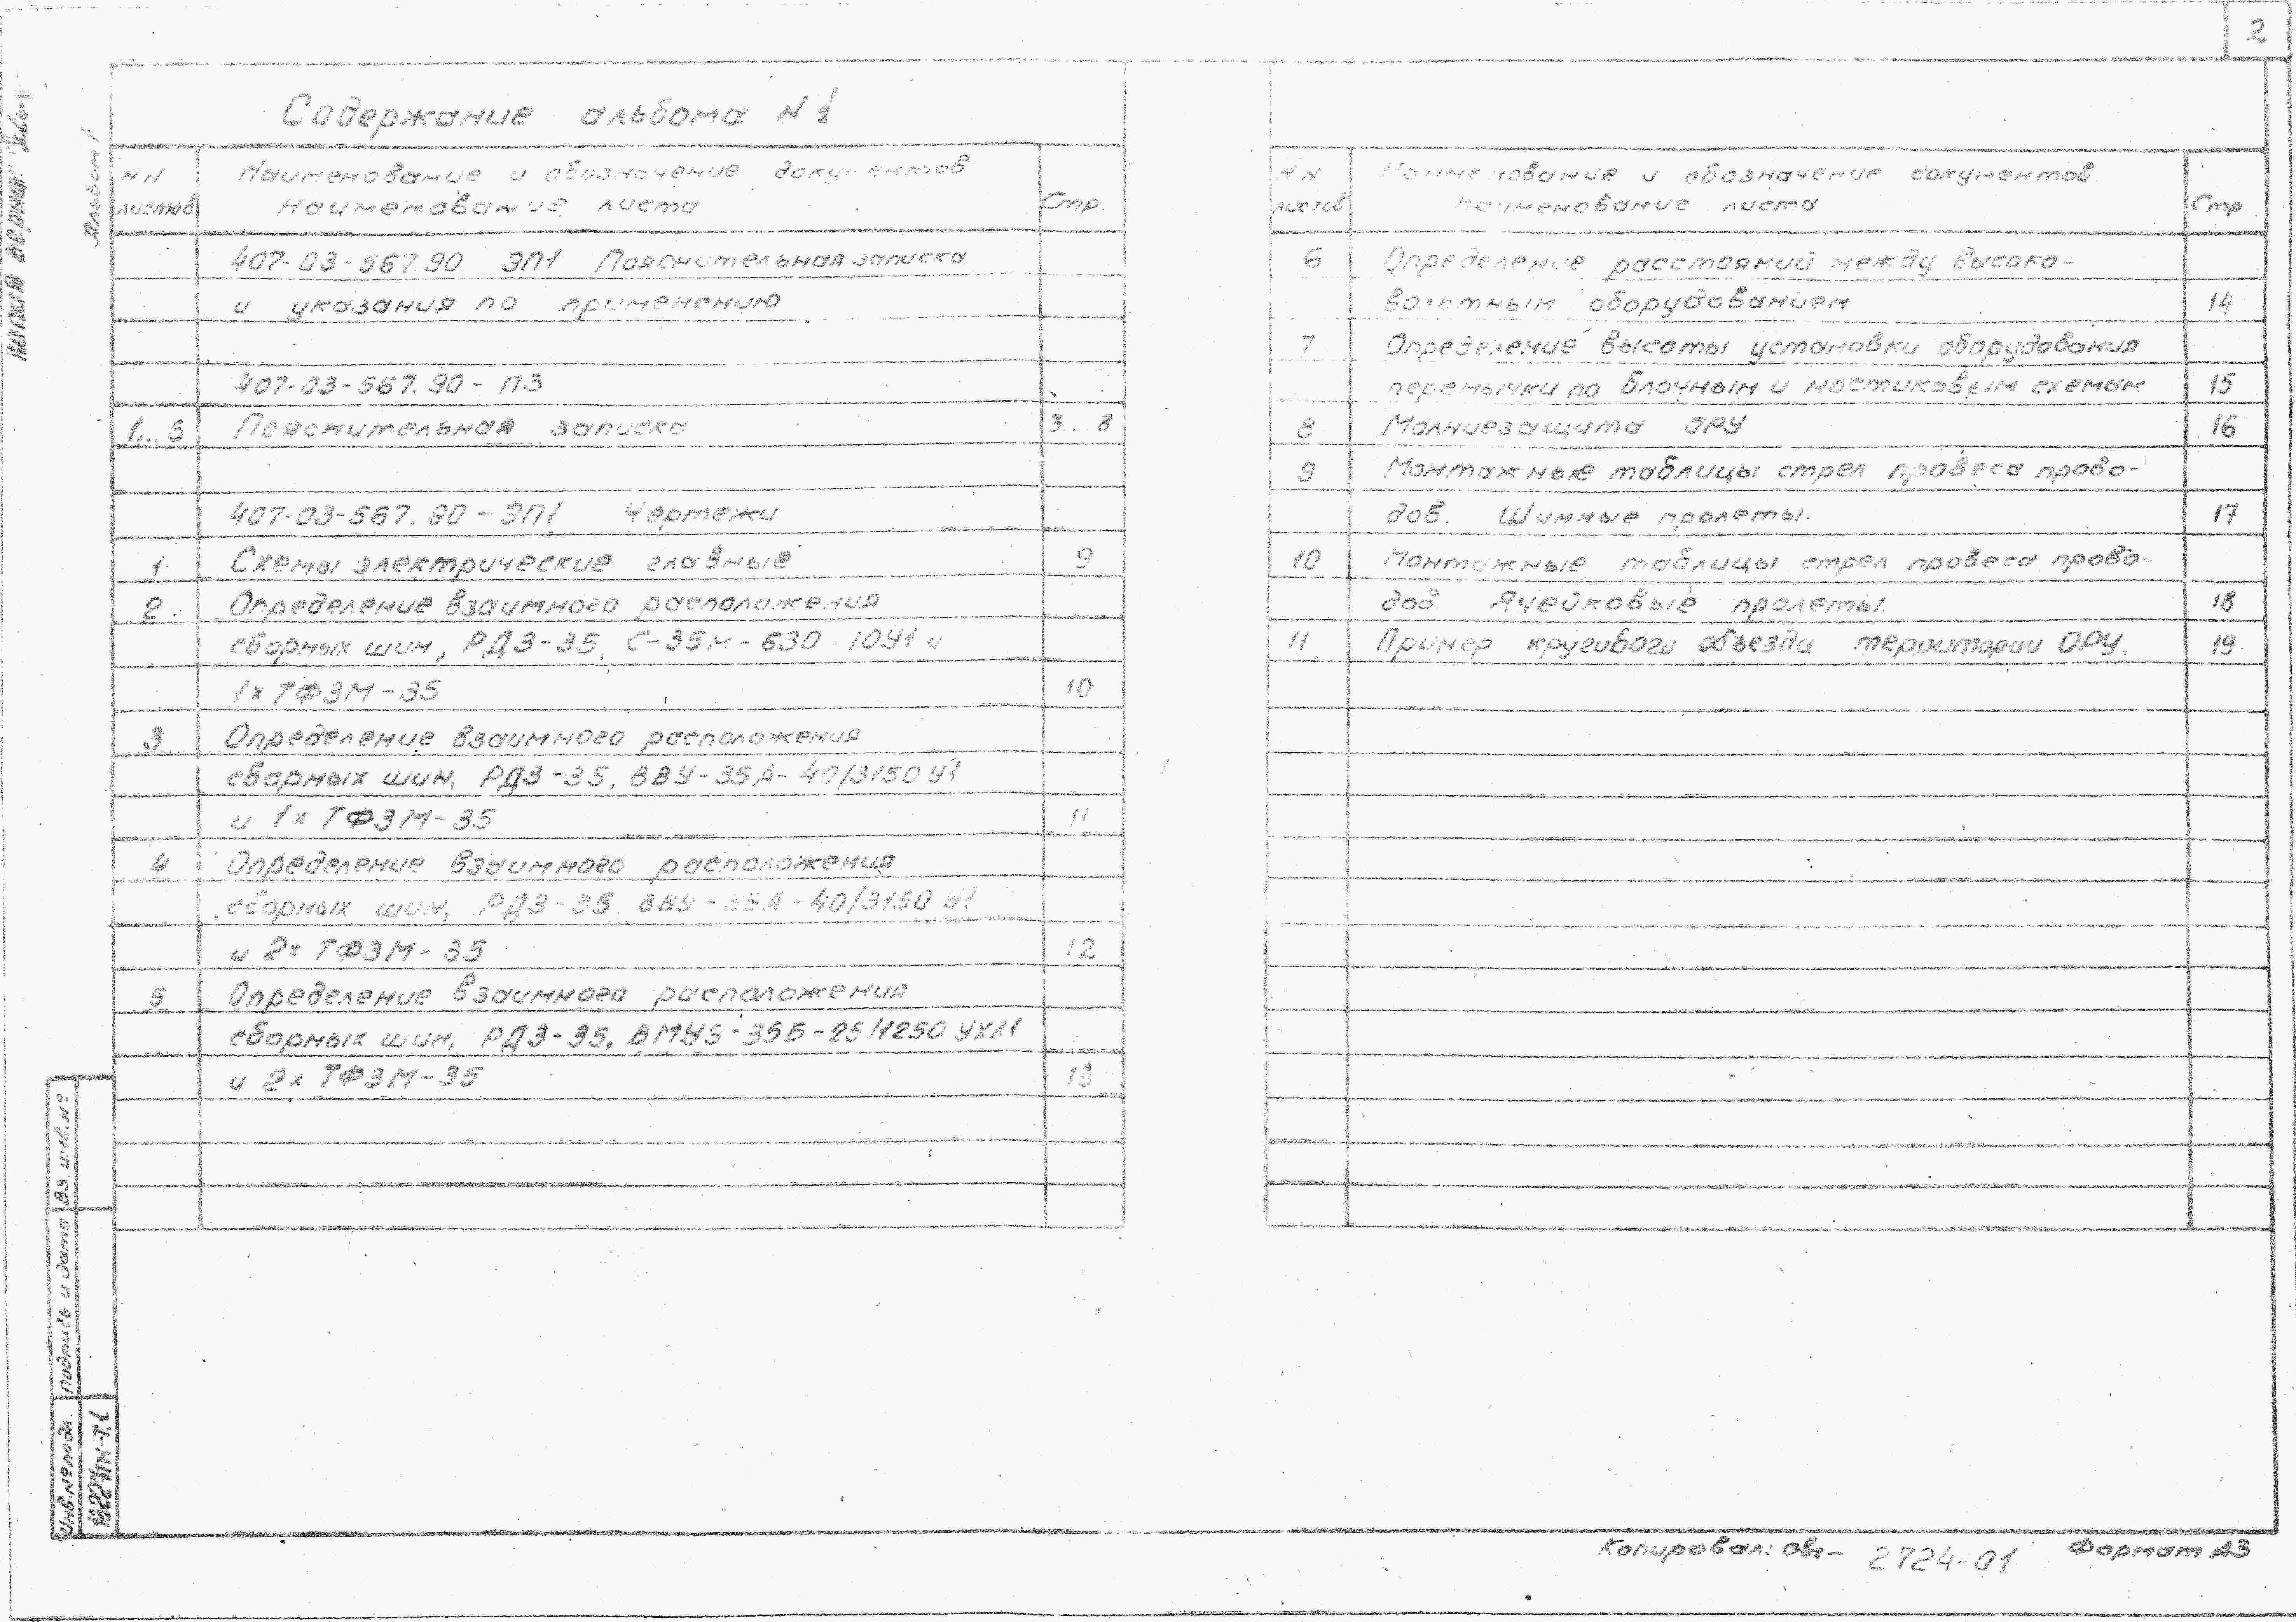 2
Альбом 1
Копия верна:
Содержание альбома N 1
NN
листов
Наименование и обозначение документов
Наименование листа
Стр.
407-03-567.90 ЭП1 Пояснительная записка
и указания по применению
407-03-567.90 - ПЗ
1... 6 Пояснительная записка 3 . 8
407-03-567.90 - ЭП1 Чертежи
1 Схемы электрические главные 9
2 Определение взаимного расположения
сборных шин, РДЗ-35, С-35М-630-10У1 и
1х ТФЗМ-35 10
3 Определение взаимного расположения
сборных шин, РДЗ-35, ВВУ-35А-40/3150 У1
и 1х ТФЗМ-35 11
4 Определение взаимного расположения
сборных шин, РДЗ-35, ВВУ-35А-40/3150 У1
и 2х ТФЗМ-35 12
5 Определение взаимного расположения
сборных шин, РДЗ-35, ВМУЭ-35Б-25/1250 УХЛ1
и 2х ТФЗМ-35 13
NN
листов
Наименование и обозначение документов
Наименование листа
Стр
6 Определение расстояний между высоко-
вольтным оборудованием 14
7 Определение высоты установки оборудования
перемычки по блочным и мостиковым схемам 15
8 Молниезащита ОРУ 16
9 Монтажные таблицы стрел провеса прово-
дов. Шинные пролеты. 17
10 Монтажные таблицы стрел провеса прово-
дов. Ячейковые пролеты. 18
11 Пример кругового объезда территории ОРУ. 19
Вз. инв. №
Подпись и дата
Инв. № подл.
Копировал: 2724-01 Формат А3